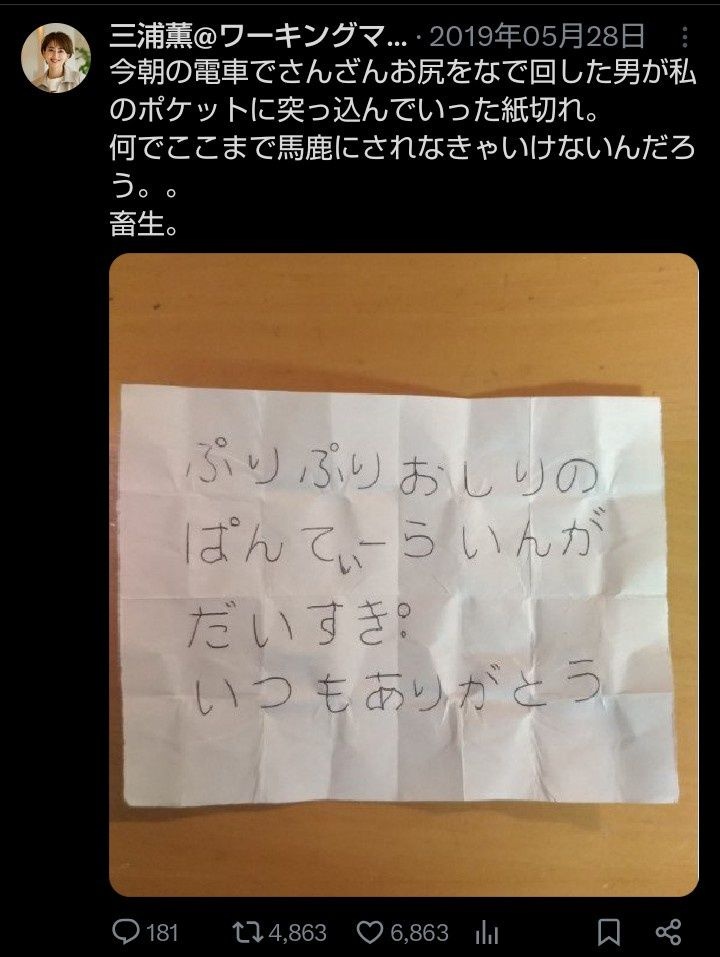 三浦薫@ワーキングマ... · 2019年05月28日
今朝の電車でさんざんお尻をなで回した男が私
のポケットに突っ込んでいった紙切れ。
何でここまで馬鹿にされなきゃいけないんだろ
う。。
畜生。
ぷりぷりおしりの
ぱんてぃーらいんが
だいすき°
いつもありがとう
181 4,863 6,863